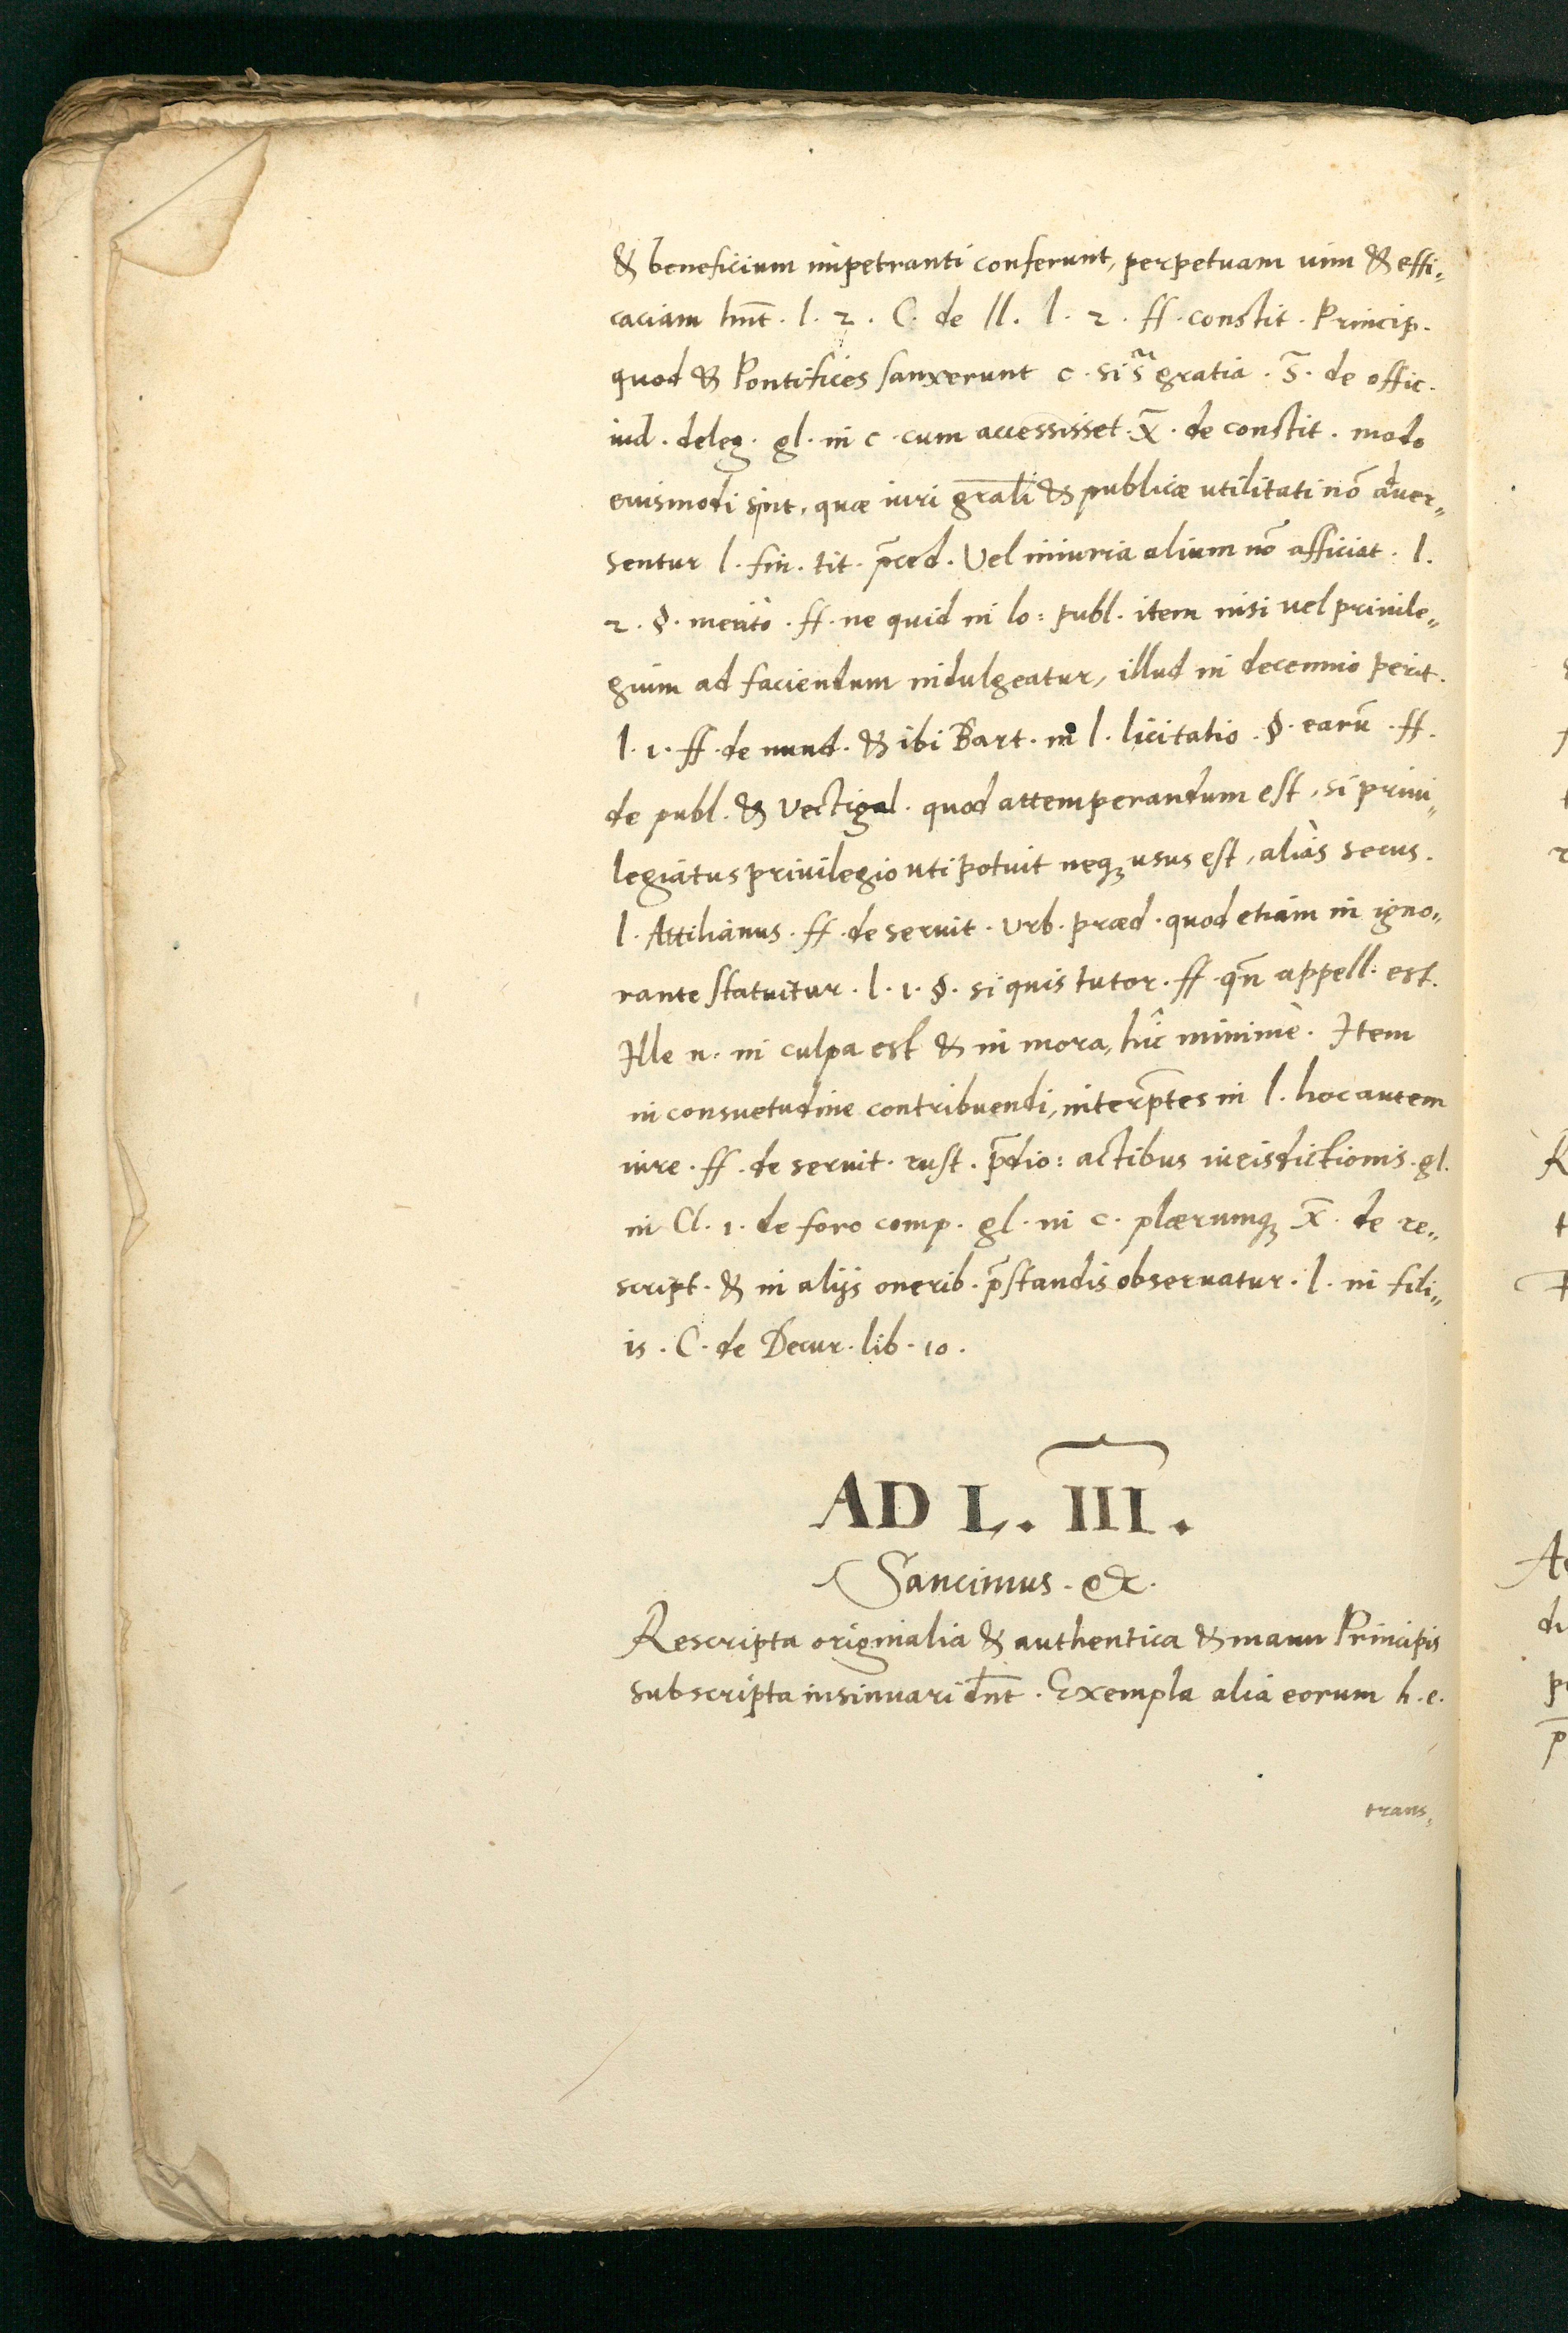 & beneficium impetranti conferunt, perpetuam uim & effi„
caciam hñt. l. 2. C. de ll. l. 2. ff. constit. Princip.
quod & Pontifices sanxerunt c. si gratia. de offic.
iud. deleg. gl. in c. cum accessisset. X̄. de constit. modo
eiusmodi sint, quæ iuri gr̄ali & publicæ utilitati nō aduer„
sentur l. fin. tit. p̄ced. Vel iniuria alium nō afficiat. l.
2. §. merito. ff. ne quid in lo: publ. item nisi uel priuile„
gium ad faciendum indulgeatur, illud in decennio perit.
l. 1. ff. de nund. & ibi Bart. in l. licitatio. §. earū. ff.
de publ. & Vectigal. quod attemperandum est, si priui„
legiatus priuilegio uti potuit neq; usus est, aliàs secus.
l. Attilianus. ff. de seruit. Vrb. præd. quod etiam in igno„
rante statuitur. l. 1. §. si quis tutor. ff. qn̄ appell. est.
Ille n. in culpa est & in mora, hic minimè. Item
in consuetudine contribuendi, interp̄tes in l. hoc autem
iure. ff. de seruit. rust. p̄dio: actibus iurisdictionis. gl.
in Cl. 1. de foro comp. gl. in c. plærumq; X̄. de re„
script. & in alijs onerib. p̄standis obseruatur. l. in fili„
is. C. de Decur. lib. 10.
AD L. III.
Sancimus. &c.
Rescripta originalia & authentica & manu Principis
subscripta insinuari dn̄t. Exempla alia eorum h. e.
trans„